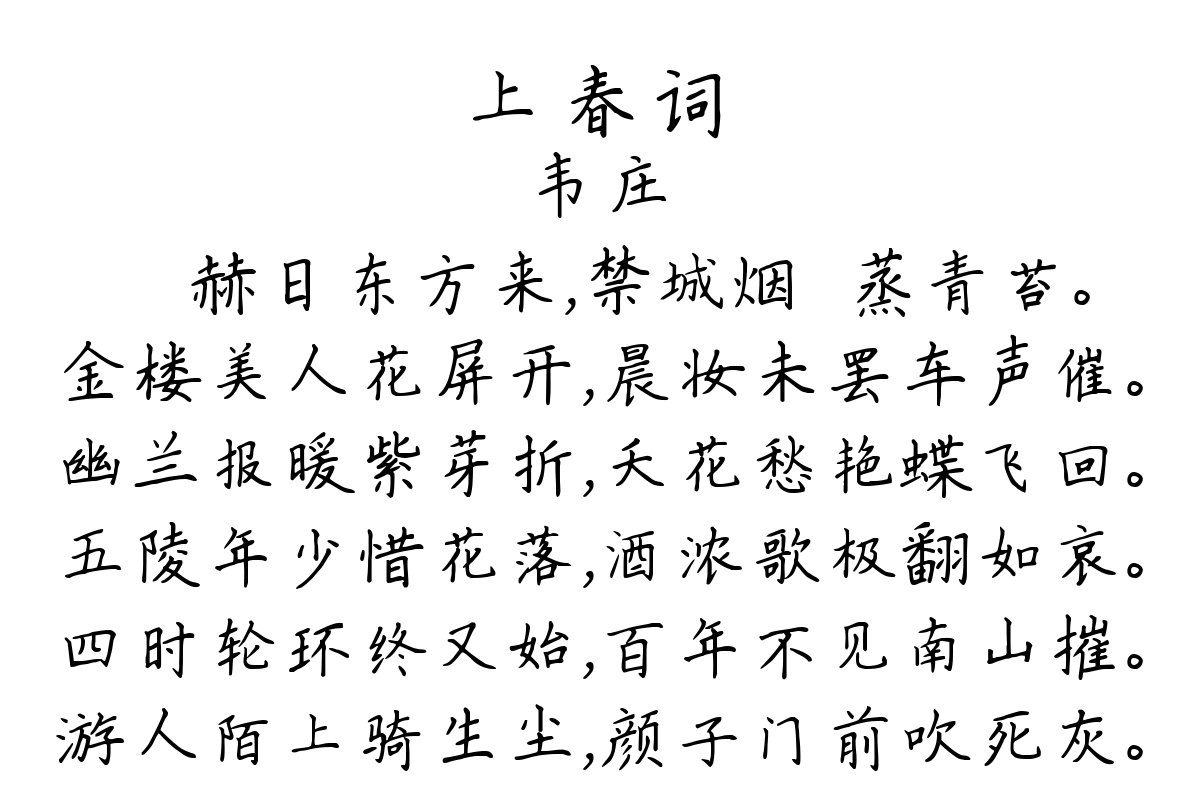 上春词
韦庄
赫日东方来,禁城烟 蒸青苔。
金楼美人花屏开,晨妆未罢车声催。
幽兰报暖紫芽折,夭花愁艳蝶飞回。
五陵年少惜花落,酒浓歌极翻如哀。
四时轮环终又始,百年不见南山摧。
游人陌上骑生尘,颜子门前吹死灰。